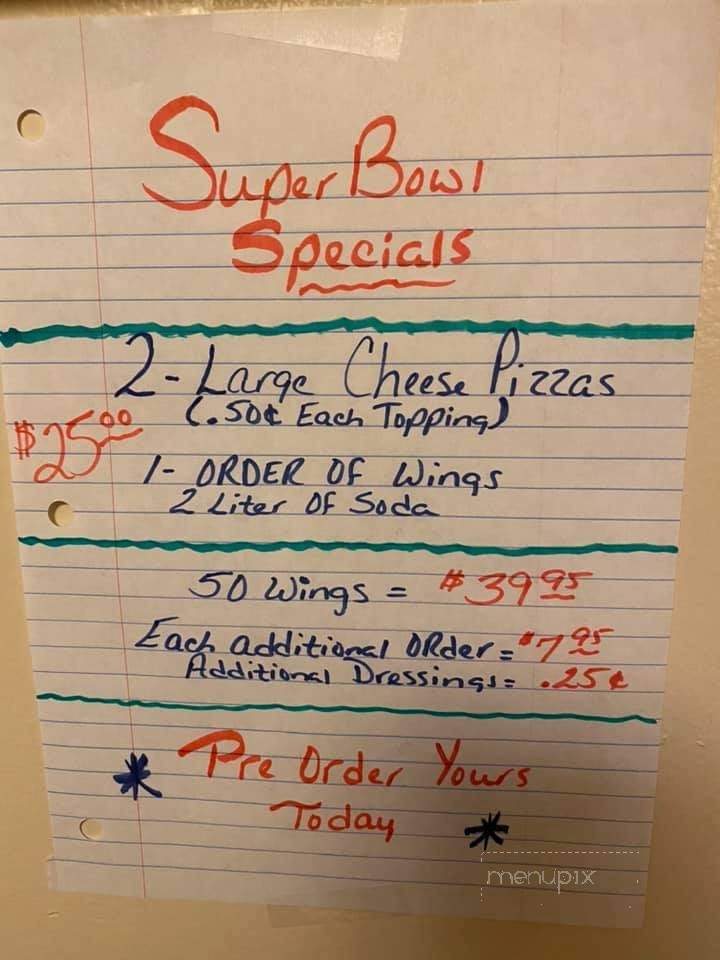 Super Bowl
Specials
2- Large Cheese Pizzas
(.50¢ Each Topping)
$25.00
1- ORDER OF Wings
2 Liter OF Soda
50 Wings = $39.95
Each additional ORder = $7.95
Additional Dressings = .25¢
* Pre Order Yours
Today *
menupix